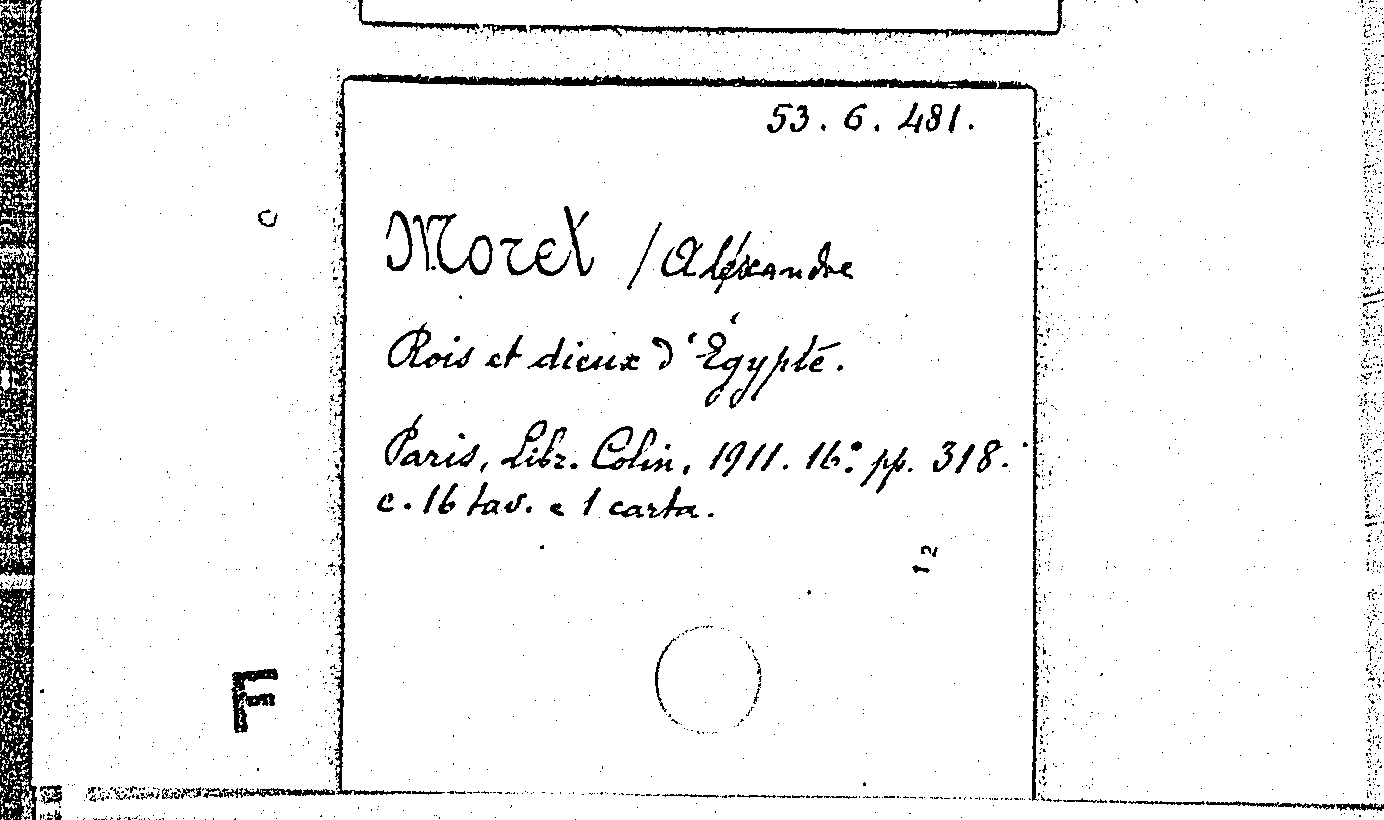 53. 6. 481.
Moret / Aléxandre
Rois et dieux d'Égypte.
Paris, Libr. Colin, 1911. 16.° pp. 318.
c. 16 tav. e 1 carta.
12
F